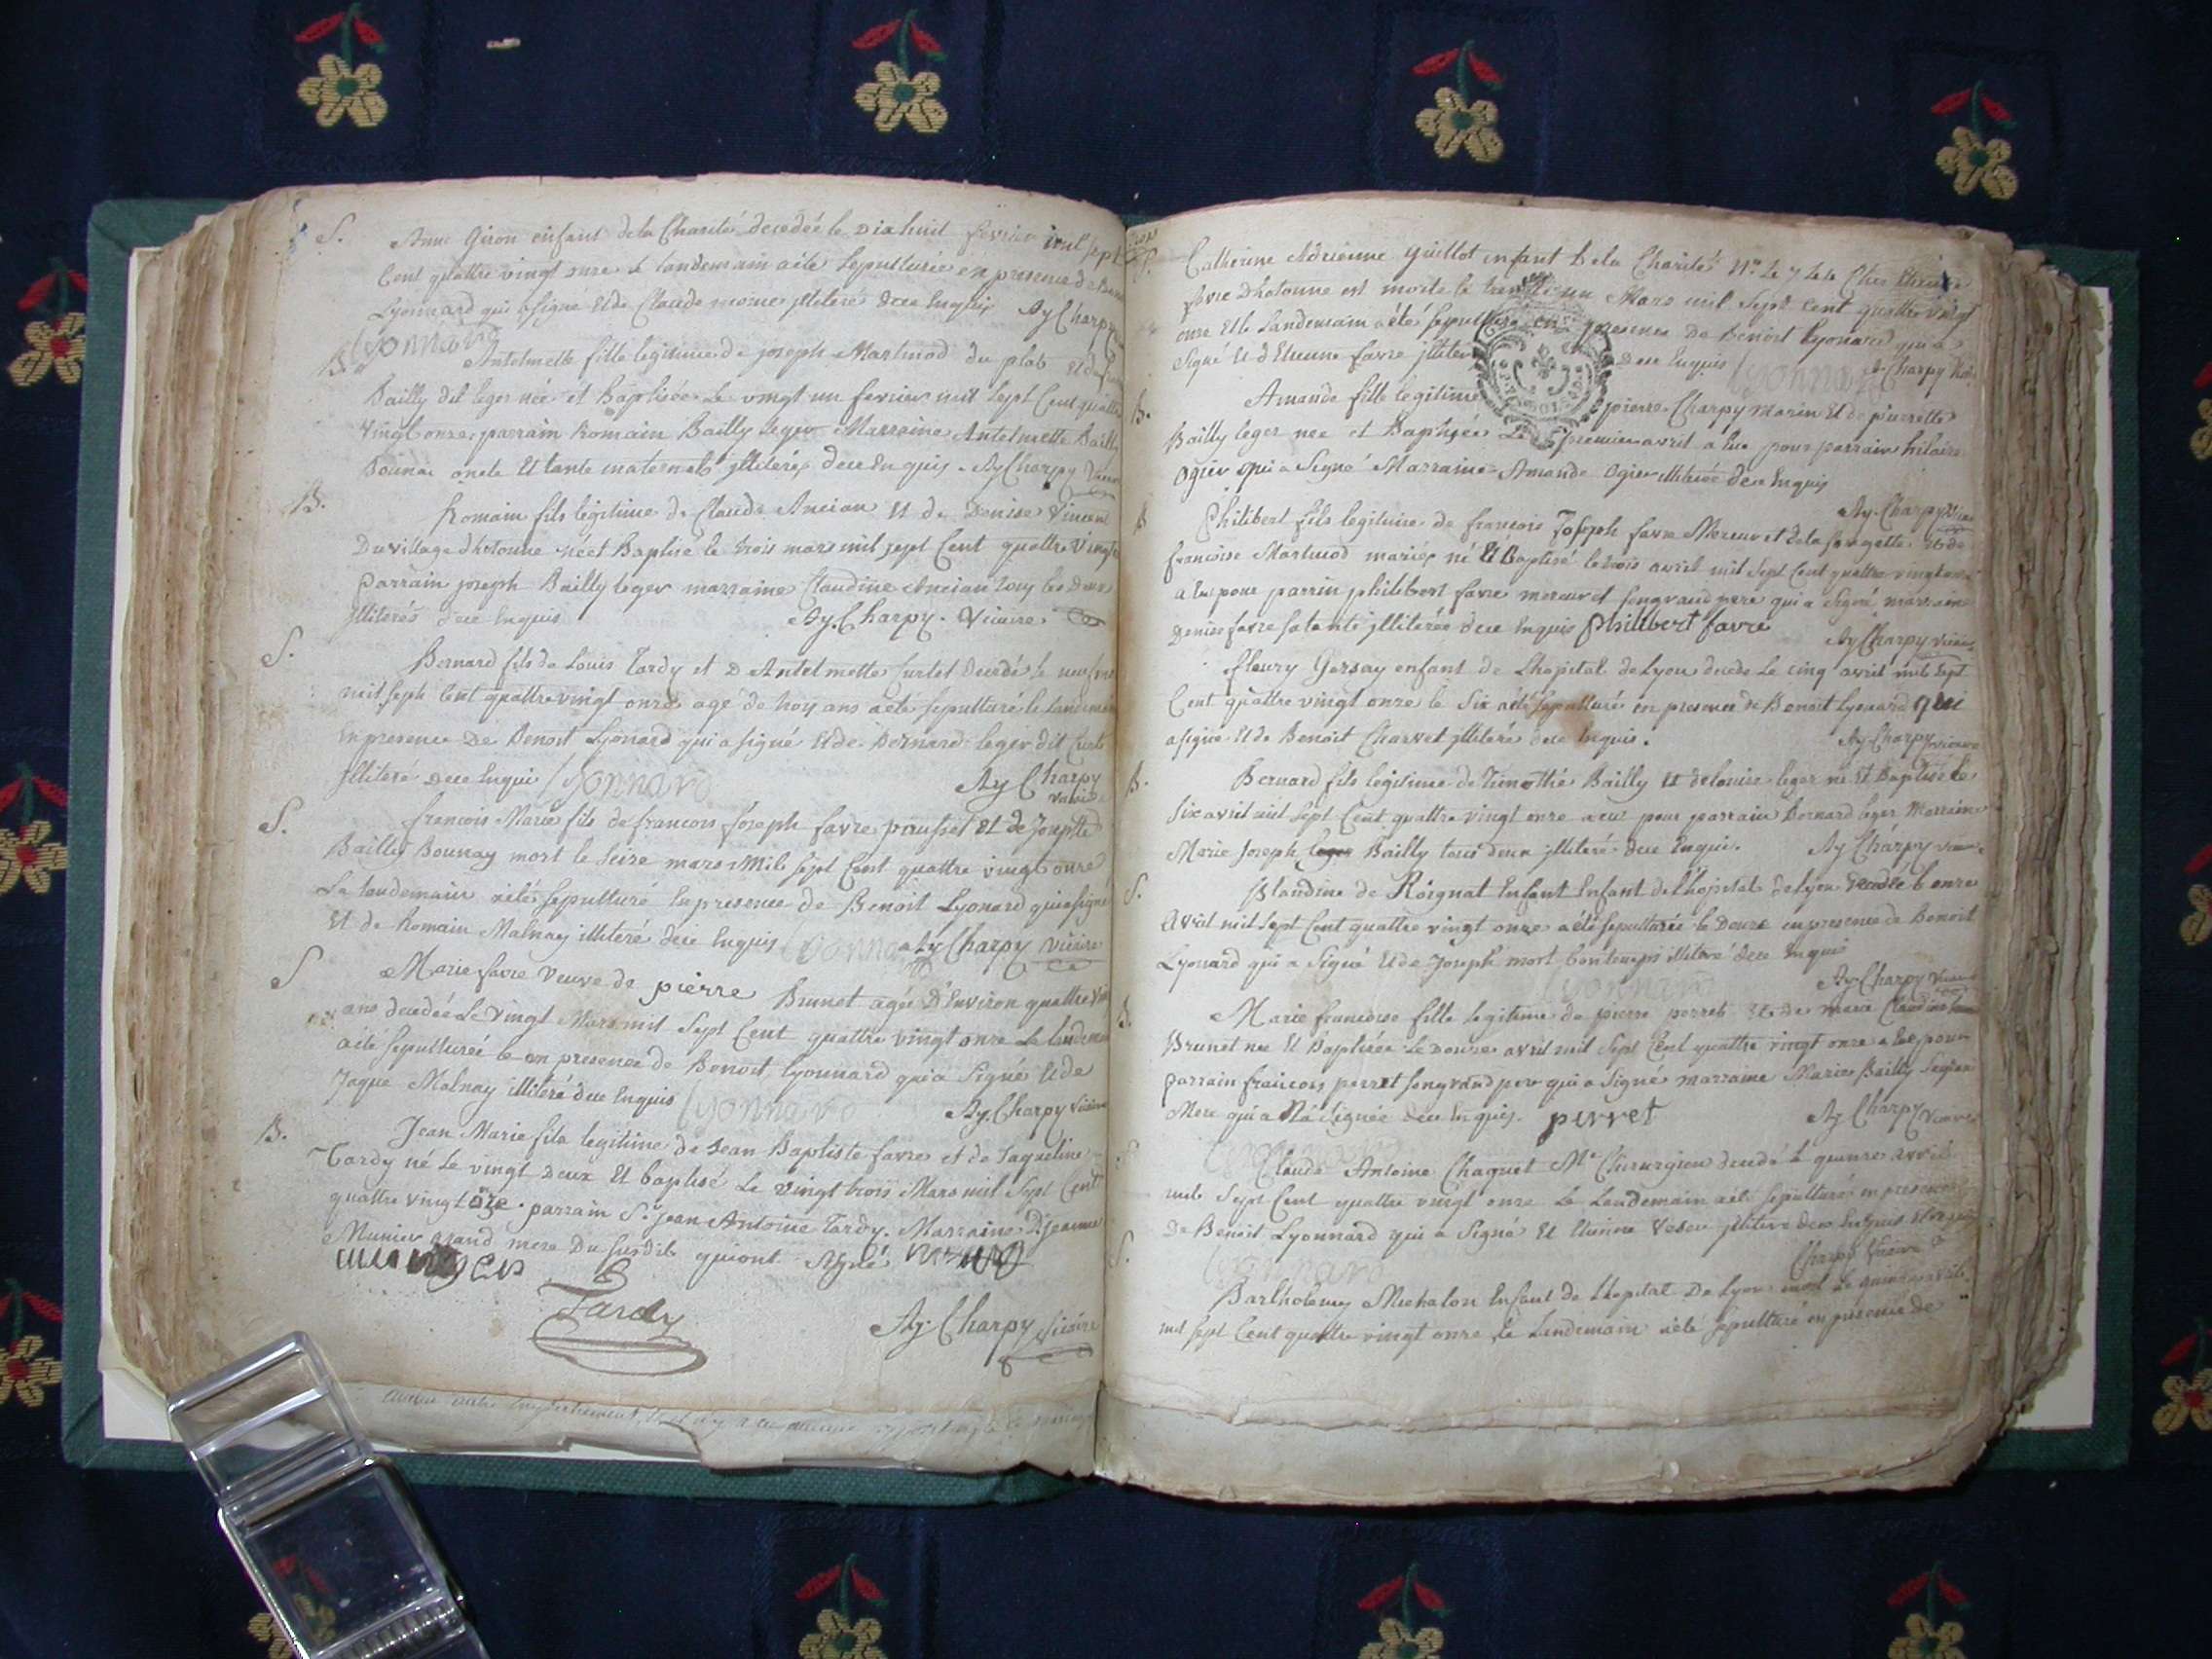 S. Anne Giron enfant de la Charité decedée le Dixhuit fevrier mil sept
Cent quattre vingt onze le landemain aété sepulturée en presence de
Lyonnard qui a signé Et de Claude illiteré dece Enquis Ay Charpy
Lyonnard
B. Antelmette fille legitime de joseph Martinod du plot Et de
Bailly dit leger née et Baptisée Le vingt un fevrier mil sept Cent quattre
vingt onze, parrain Romain Bailly leger Marraine Antelmette Bailly
Bounai oncle Et tante maternels illiterés dece Enquis. Ay Charpy
B. Romain fils legitime de Claude Ancian Et de Denise Vincent
Du village dhotonne né et Baptisé le trois mars mil sept Cent quattre vingt
parrain joseph Bailly leger marraine Claudine Ancian tous les Deux
illiterés dece Enquis Ay. Charpy. Vicaire.
S. Bernard fils de Louis Tardy et D Antelmette furlet decedé le neuf
mil sept Cent quattre vingt onze agé de troy ans aété sepulturé le landemain
en presence De Benoit Lyonard qui a signé Et de Bernard leger dit
illiteré dece Enqui Lyonnard Ay Charpy
vicaire
S. francois Marie fils de francois joseph favre et de Josephte
Bailly Bounay mort le seize mars Mil sept Cent quattre vingt onze
Le landemain aété sepulturé En presence de Benoit Lyonard qui a signé
Et de Romain Malnay illiteré dece Enquis Lyonnard Ay Charpy vicaire
S Marie favre veuve de pierre Brunet agée D'Environ quattre
ans decedée Le vingt Mars mil sept Cent quattre vingt onze Le landemain
aété sepulturée le en presence de Benoit Lyonnard qui a signé Et de
Jaque Malnay illiteré dece Enquis Lyonnard Ay. Charpy vicaire
B. Jean Marie fils legitime de Jean Baptiste favre et de Jaqueline
Tardy né le vingt deux Et baptisé Le vingt trois Mars mil sept Cent
quattre vingt oze. parrain Sr. jean Antoine Tardy. Marraine Djeanne
Munier grand mere Du susdit qui ont signé
Tardy
Ay. Charpy vicaire
S. Catherine Adrienne Guillot enfant de la Charité
favre Dhotonne est morte le trente un Mars mil sept cent quattre vingt
onze Et le landemain aété sepulturée en presence De Benoit Lyonard qui a
signé Et d'Etienne favre illiteré dece Enquis Lyonnard Charpy
B. Amande fille legitime pierre Charpy Marin Et de pierrette
Bailly leger nee et Baptisée Le premier avril a Eue pour parrain hilaire
Ogier qui a Signé Marraine Amande Ogier illiterée dece Enquis
Ay. Charpy vicaire
B Philibert fils legitime de francois Joseph favre Mercuret de la Et de
francoise Martinod mariés né Et Baptisé le trois avril mil sept Cent quattre vingt onze
a Eu pour parrin philibert favre mercuret son grand pere qui a signé marraine
Denise favre sa tante illiterée dece Enquis Philibert favre Ay Charpy vicaire
fleury Gersay enfant de Lhopital de Lyon decede Le cinq avril mil sept
Cent quattre vingt onze le six aété sepulturé en presence de Benoit Lyonard qui
a signé Et de Benoit Charvet illiteré dece Enquis. Ay. Charpy vicaire
B. Bernard fils legitime de Timothé Bailly Et de louise leger né Et Baptisé le
Six avril mil sept Cent quattre vingt onze a eu pour parrain Bernard leger Marraine
Marie Joseph leger Bailly tous deux illiteré dece Enqui. Ay Charpy vicaire
S. Blandine de Roignat Enfant Enfant de l'hopital de Lyon decedée le onze
Avril mil sept Cent quattre vingt onze aété sepulturée le Douze en presence de Benoit
Lyonnard qui a signé Et de Joseph mort illiteré dece Enquis
Lyonnard Ay Charpy vicaire
B. Marie francoise fille legitime de pierre perret Et de marie Claudine
Brunet nee Et Baptisée Le Douze avril mil sept Cent quattre vingt onze a Eue pour
parrain francois perret son grand pere qui a signé marraine Marie Bailly
Mere qui a signée dece Enquis. perret Ay Charpy vicaire
Lyonnard
Claude Antoine Chaquet Me Chirurgien decedé le quinze avril
mil sept Cent quattre vingt onze Le Landemain aété sepulturé en presence
De Benoit Lyonnard qui a signé Et Etienne illiteré dece Enquis
Lyonnard Charpy Vicaire
S. Barthelemy Michalon Enfant de Lhopital De Lyon mort Le quinze avril
mil sept Cent quattre vingt onze Le Landemain aété sepulturé en presence de